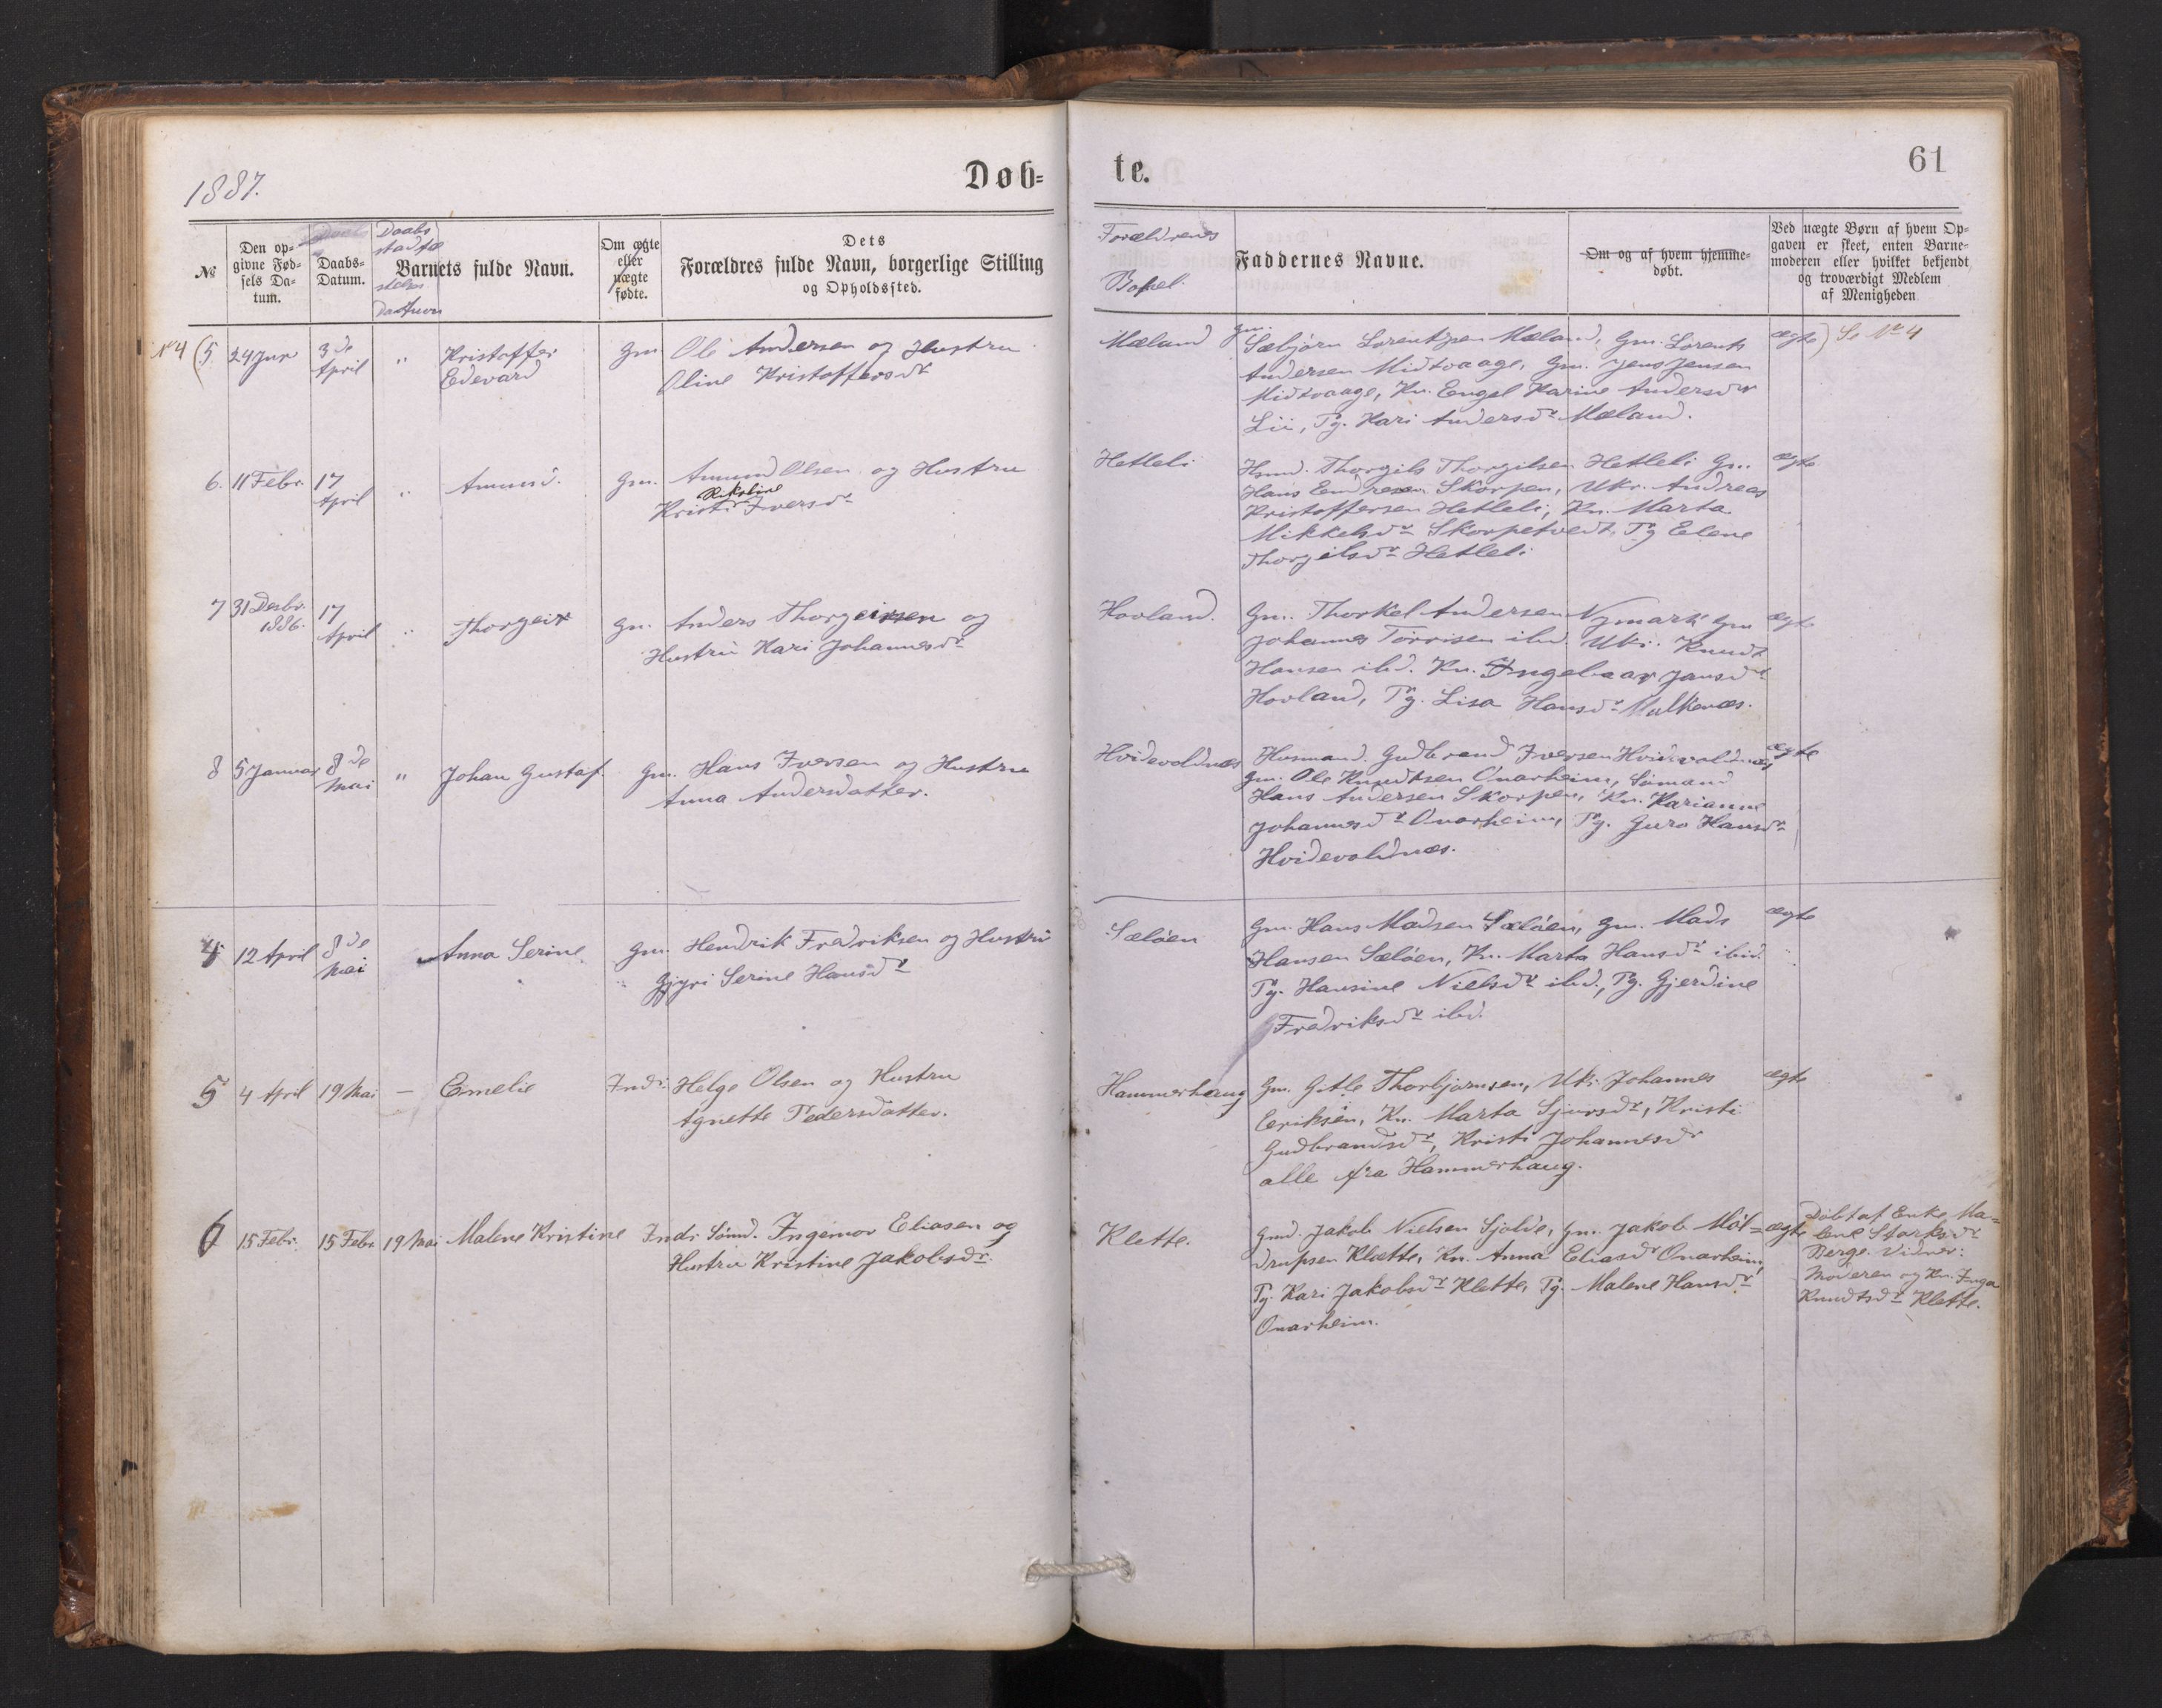 1887.
Døb=
te.
61
№
Den op=
givne Fød=
sels Da=
tum.
Daabs=
Datum.
Daabs
stadfæ
stelses
Datum
Barnets fulde Navn.
Om ægte
eller
uægte
fødte.
Dets
Forældres fulde Navn, borgerlige Stilling
og Opholdssted.
Forældrenes
Bopæl.
Faddernes Navne.
Om og af hvem hjemme=
døbt.
Ved uægte Børn af hvem Op=
gaven er skeet, enten Barne=
moderen eller hvilket bekjendt
og troværdigt Medlem
af Menigheden
№ 4 (5
3de
April
"
Kristoffer
Edevard
Gm
Ole Andersen og Hustru
Oline Kristoffersdr
Mæland
Gm.
Sæbjørn Lorentzen Mæland, Gm. Lorents
Andersen Midtvaage, Gm. Jens Jensen
Midtvaage, Kn. Engel Karine Andersdr
Lii, Pg. Kari Andersdr Mæland.
ægte) Se № 4
6.
11 Febr.
17
April
"
Amund.
Gm.
Amund Olsen og Hustru
Rikstine
Kristi Iversdr
Hetleli
Hsmd. Thorgils Thorgilsen Hetleli Gm.
Hans Endresen Skorpen, Ukr. Andreas
Kristoffersen Hetleli, Kn. Marta
Mikkelsdr Skorpetvedt, Pg Elene
Thorgilsdr Hetleli
ægte
7
31 Desbr.
1886.
17
April
"
Thorgeir
Gm.
Anders Thorgeirsen og
Hustru Kari Johannesdr
Hovland.
Gm. Thorkel Andersen Nymark Gm
Johannes Torrisen ibd. Uki. Knudt
Hansen ibd. Kn. Ingebaar Jansdr
Hovland, Pg. Lisa Hansdr Mulkenæs.
ægte
8
5 Januar
8de
Mai
"
Johan Gustaf.
Gm.
Hans Iversen og Hustru
Anna Andersdatter.
Hvidevoldnæs
Husmand. Gudbrand Iversen Hvidevoldnæs
Gm. Ole Knudtsen Onarheim, Sømand
Hans Andersen Skorpen, Kn. Karianne
Johannesdr Onarheim, Pg. Guro Hansdr
Hvidevoldnæs.
ægte
4
12 April
8de
Mai
Anna Serine
Gm.
Hendrik Fredriksen og Hustru
Gjyri Serine Hansdr
Sæløen
Gm. Hans Madsen Sæløen, Gm. Mads
Hansen Sæløen, Kn. Marta Hansdr ibid.
Pg. Hansine Nielsdr ibd., Pg. Gjerdine
Fredriksdr ibd.
ægte
5
4 April
19 Mai
—
Emelie
Indr
Helge Olsen og Hustru
Agnette Pedersdatter.
Hammerhaug
Gm. Gitle Thorbjørnsen, Uki. Johannes
Eriksen, Kn. Marta Sjursdr, Kristi
Gudbrandsdr, Kristi Johannesdr
alle fra Hammerhaug.
ægte
6
15 Febr.
15 Febr.
19 Mai
Malene Kristine
Indr Sømd. Ingemor Eliasen og
Hustru Kristine Jakobsdr.
Klette.
Gmd. Jakob Nielsen Sjolde, Gm. Jakob Møl=
drupsen Klætte, Kn. Anna Eliasdr Onarheim,
Pg. Kari Jakobsdr Klette, Pg. Malene Hansdr
Onarheim.
ægte
Døbt af Enke Ma=
lene Størksdr
Berge. Vidner:
Moderen og Kn. Inga
Knudtsdr Klette.